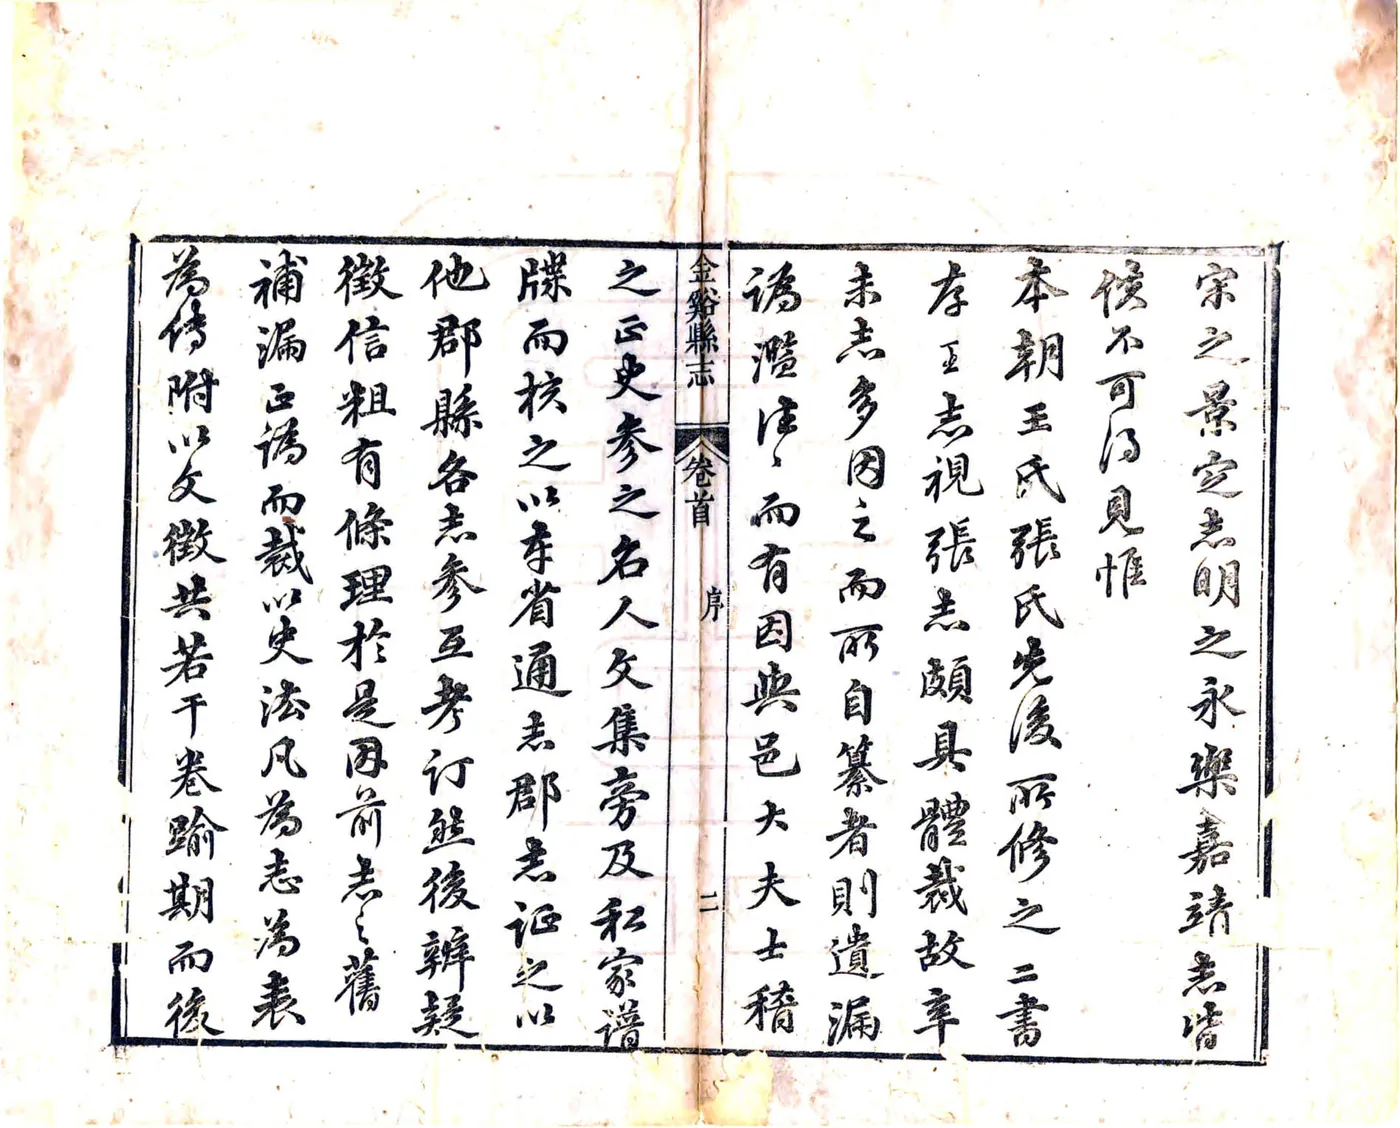 宋之景定志明之永樂嘉靖志皆
佚不可得見惟
本朝王氏張氏先後所修之二書
存王志視張志頗具體裁故辛
未志多因之而所自纂者則遺漏
譌濫往〻而有因與邑大夫士稽
金谿縣志 卷首 序 二
之正史參之名人文集旁及私家譜
牒而核之以本省通志郡志証之以
他郡縣各志參互考訂然後辨疑
徵信粗有條理於是因前志〻舊
補漏正譌而裁以史法凡為志為表
為傳附以文徵共若干卷踰期而後